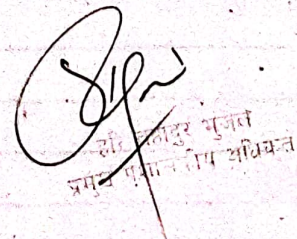 हरि बहादुर भुजेल
प्रमुख प्रशासकीय अधिकृत